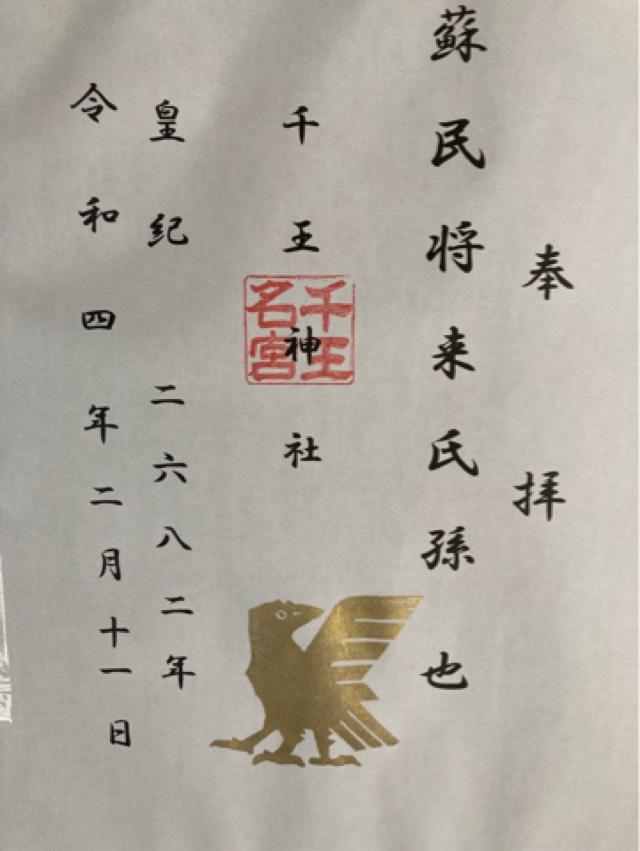 奉拝
蘇民将来氏孫也
千王神社
千王
名宮
皇紀二六八二年
令和四年二月十一日